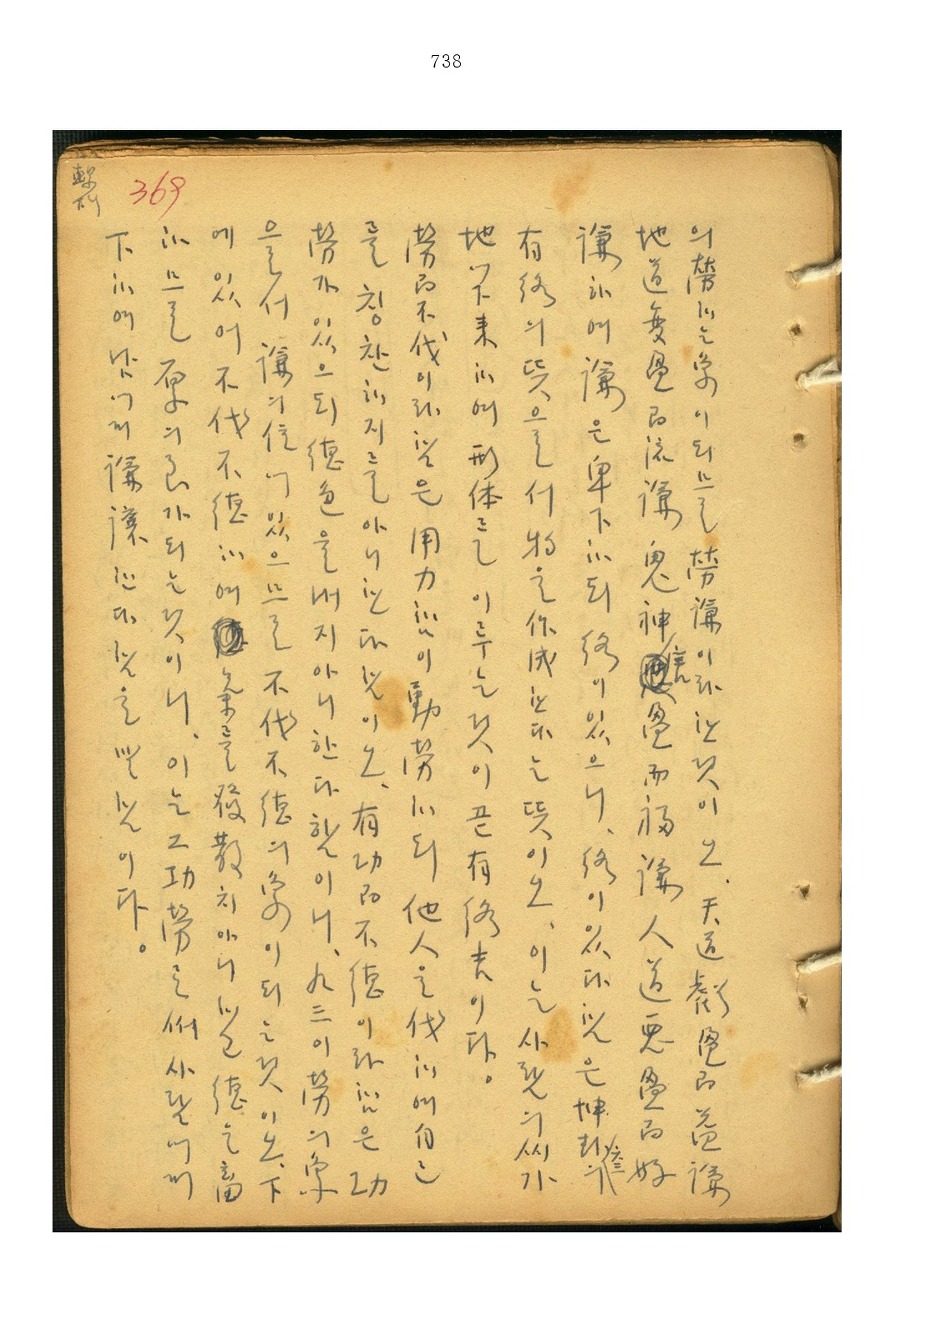 738
繫下
369
의 勞하는 象이되므로 勞謙이라한것이오. 天道虧盈而益謙
地道變盈而流謙 鬼神害盈而福謙 人道惡盈而好
謙하며 謙은 卑下하되 終이있으니, 終이있다함은 坤卦 六三
有終의 뜻으로서 物을 作成한다는 뜻이오, 이는 사람의 씨가
地下에 하며 形体를 이루는것이 곧 有終 이다.
勞而不伐이라함은 用力함이 勤勞하되 他人을 伐하며 自己
를 칭찬하지를 아니한다함이오, 有功而不德이라함은 功
勞가 있으되 德色을 내지아니한다함이니, 九三이 勞의 象
으로서 謙의 位에 있으므로 不伐 不德의 象이되는것이오, 下
에 있어 不伐 不德하며 氣를 發散치아니함은 德을 畜
하므로 厚의 가되는것이니, 이는 그 功勞로써 사람에게
下하며 남에게 謙讓한다함을 말함이다.